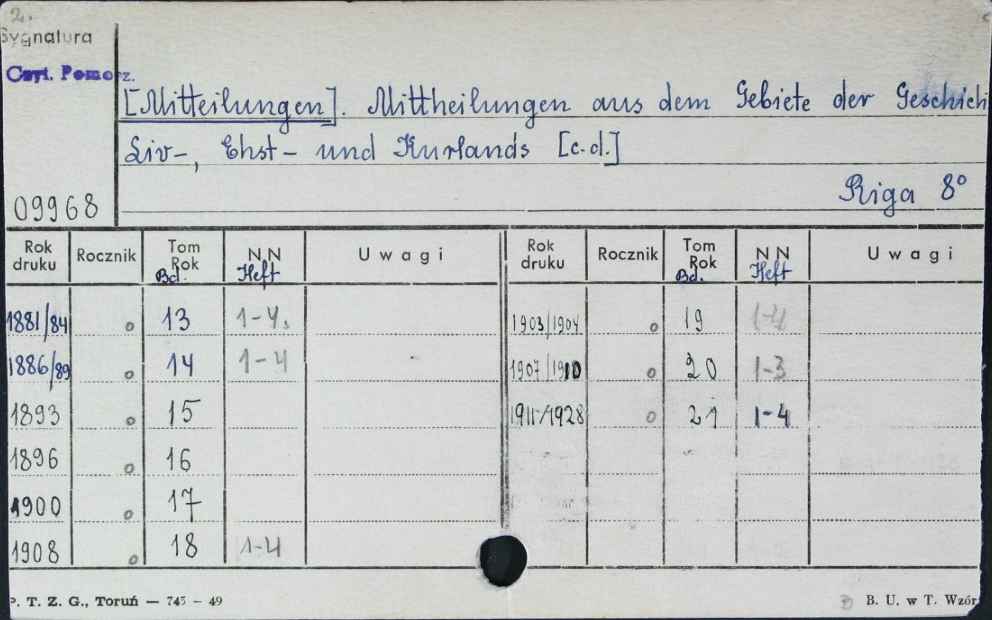 2.
Sygnatura
Czyt. Pomorz.
[Mitteilungen]. Mittheilungen aus dem Gebiete der Geschich
Liv-, Ehst- und Kurlands [c.d.]
Riga 8°
09968
Rok druku Rocznik Tom Rok Bd. NN Heft Uwagi Rok druku Rocznik Tom Rok Bd. NN Heft Uwagi
1881/84 o 13 1-4. 1903/1904 o 19 1-4
1886/89 o 14 1-4 1907/1910 o 20 1-3
1893 o 15 1911/1928 o 21 1-4
1896 o 16
1900 o 17
1908 o 18 1-4
P. T. Z. G., Toruń — 745 - 49 B. U. w T. Wzór